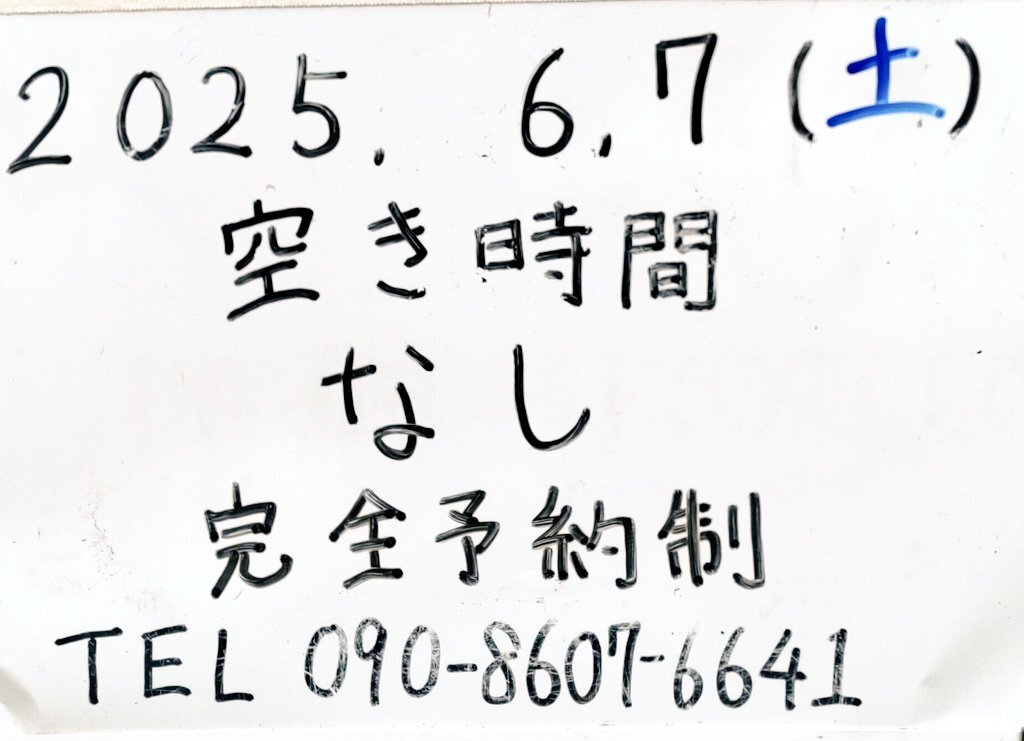 2025. 6.7(土)
空き時間
なし
完全予約制
TEL 090-8607-6641